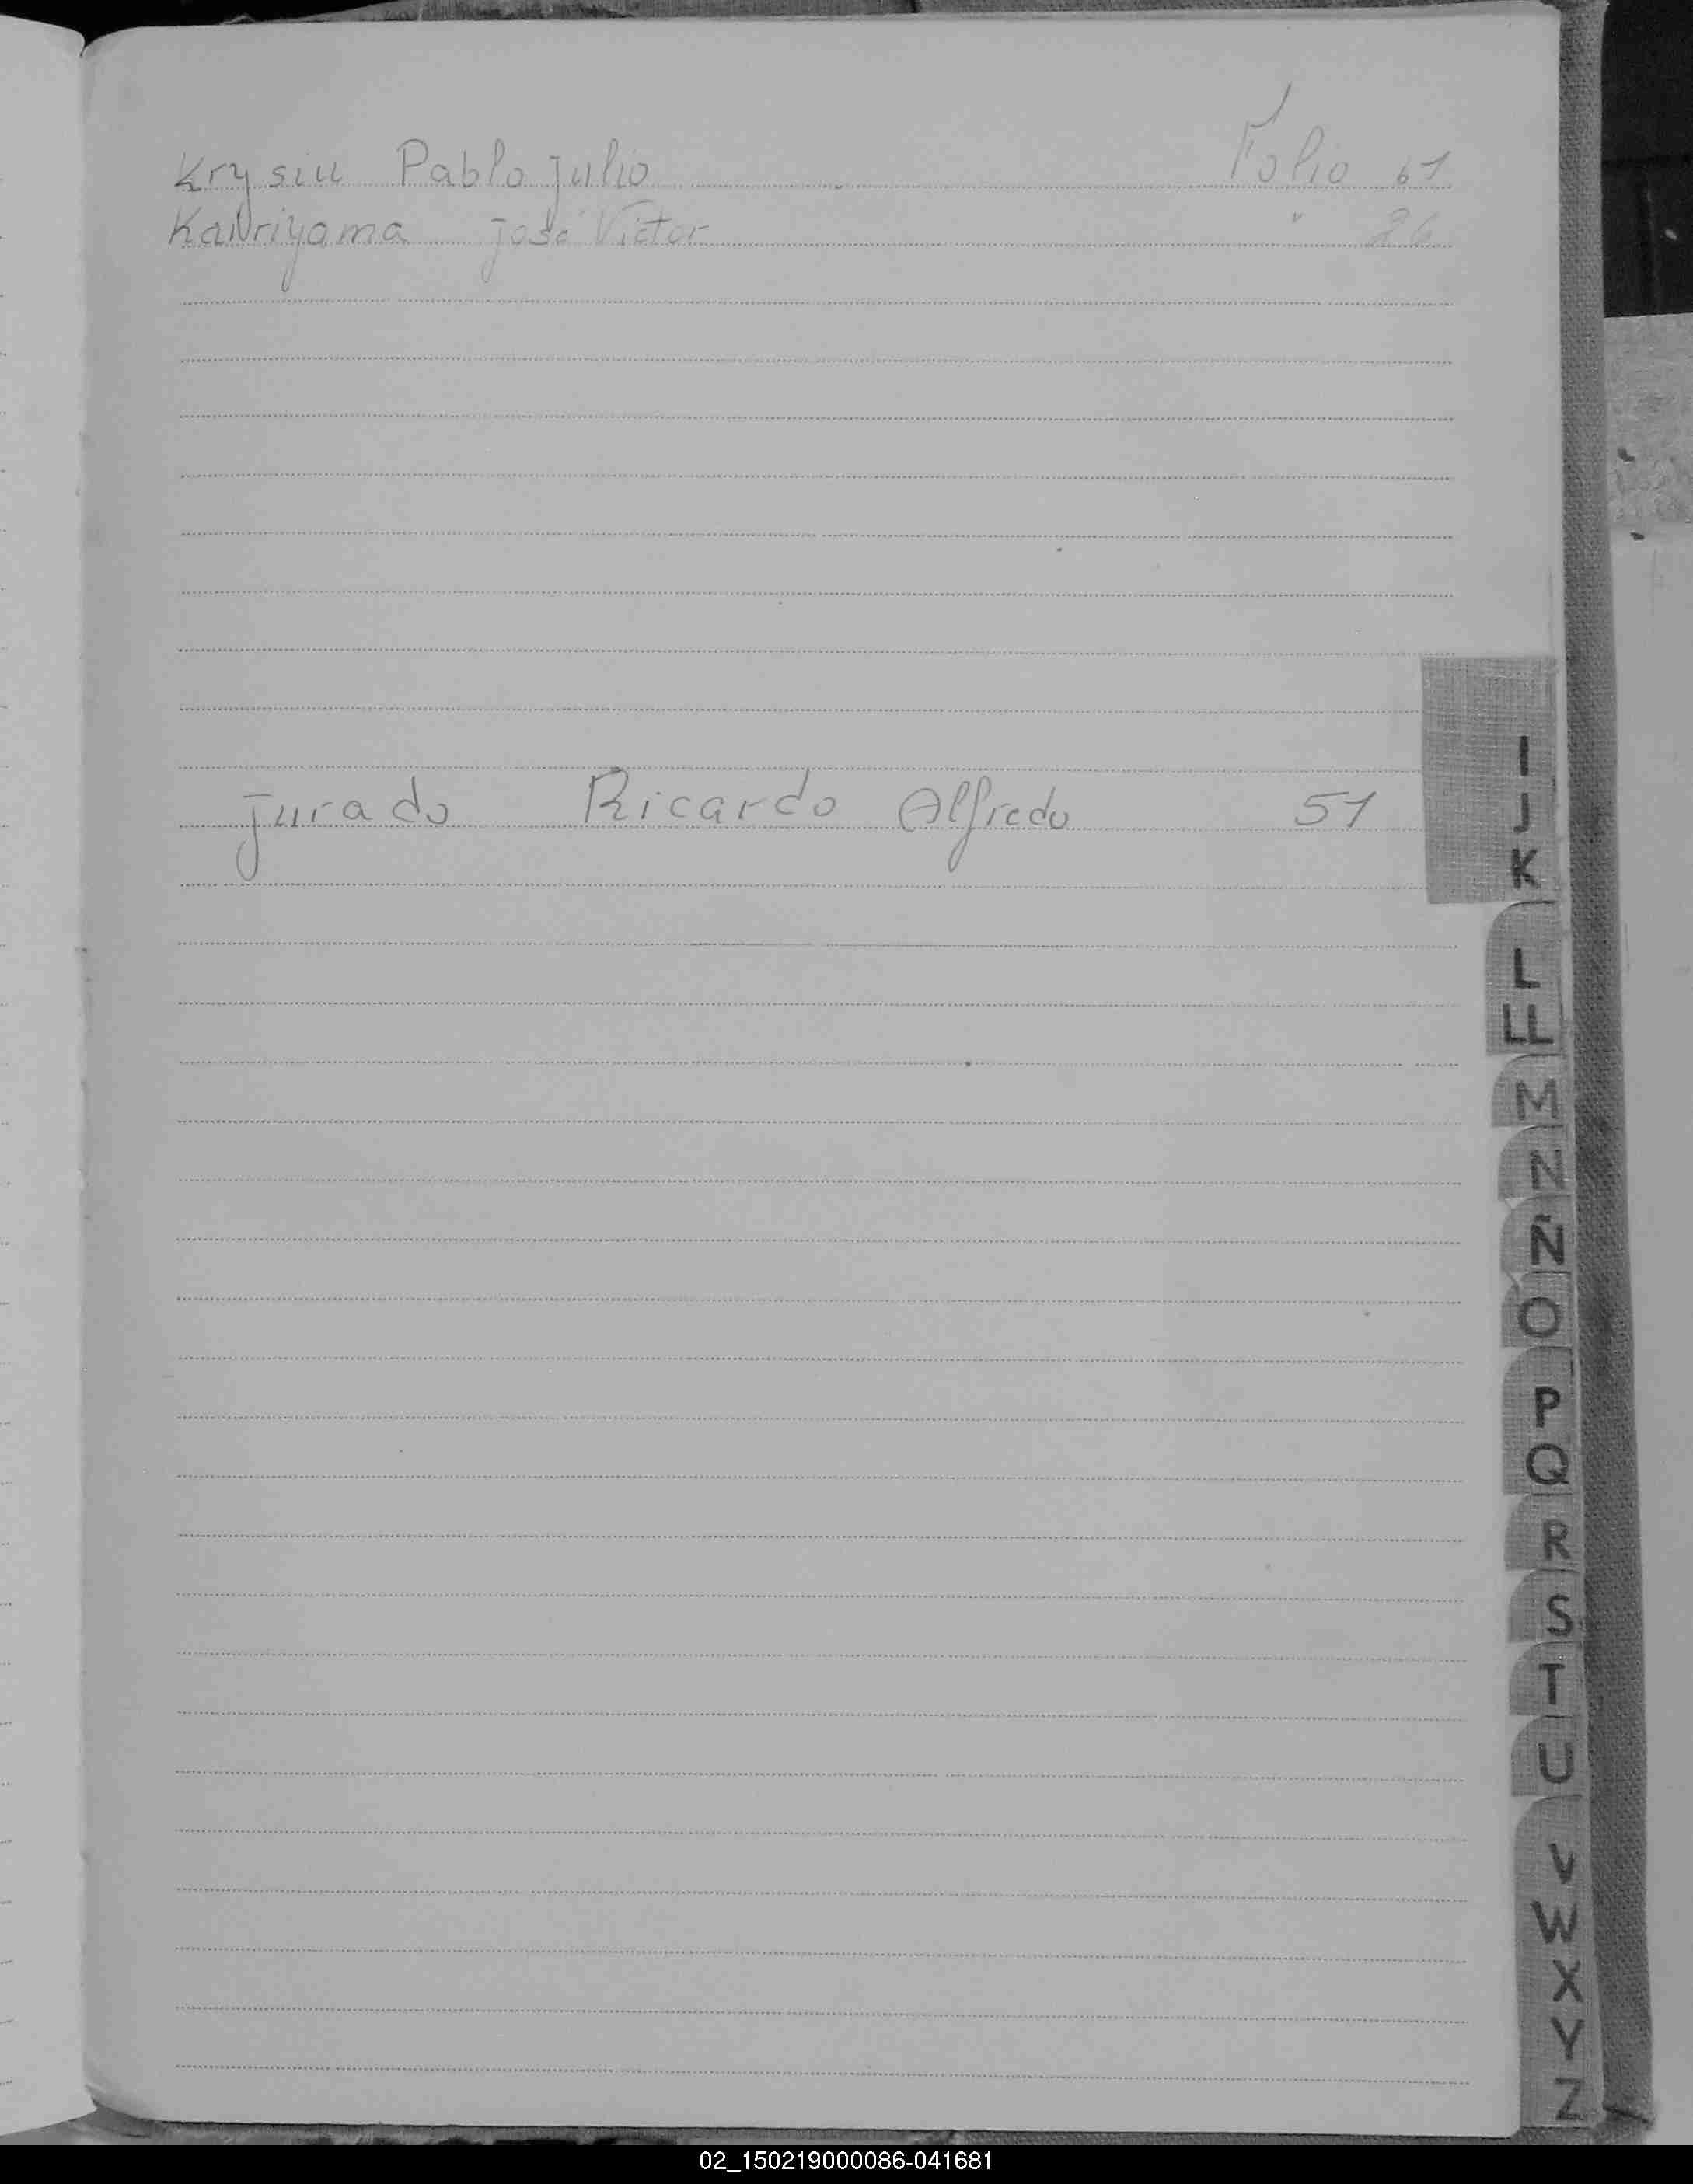 Krysiu Pablo Julio Folio 61
Kanriyama José Victor " 26
Jurado Ricardo Alfredo 51
I
J
K
L
LL
M
N
Ñ
O
P
Q
R
S
T
U
V
W
X
Y
Z
02_150219000086-041681